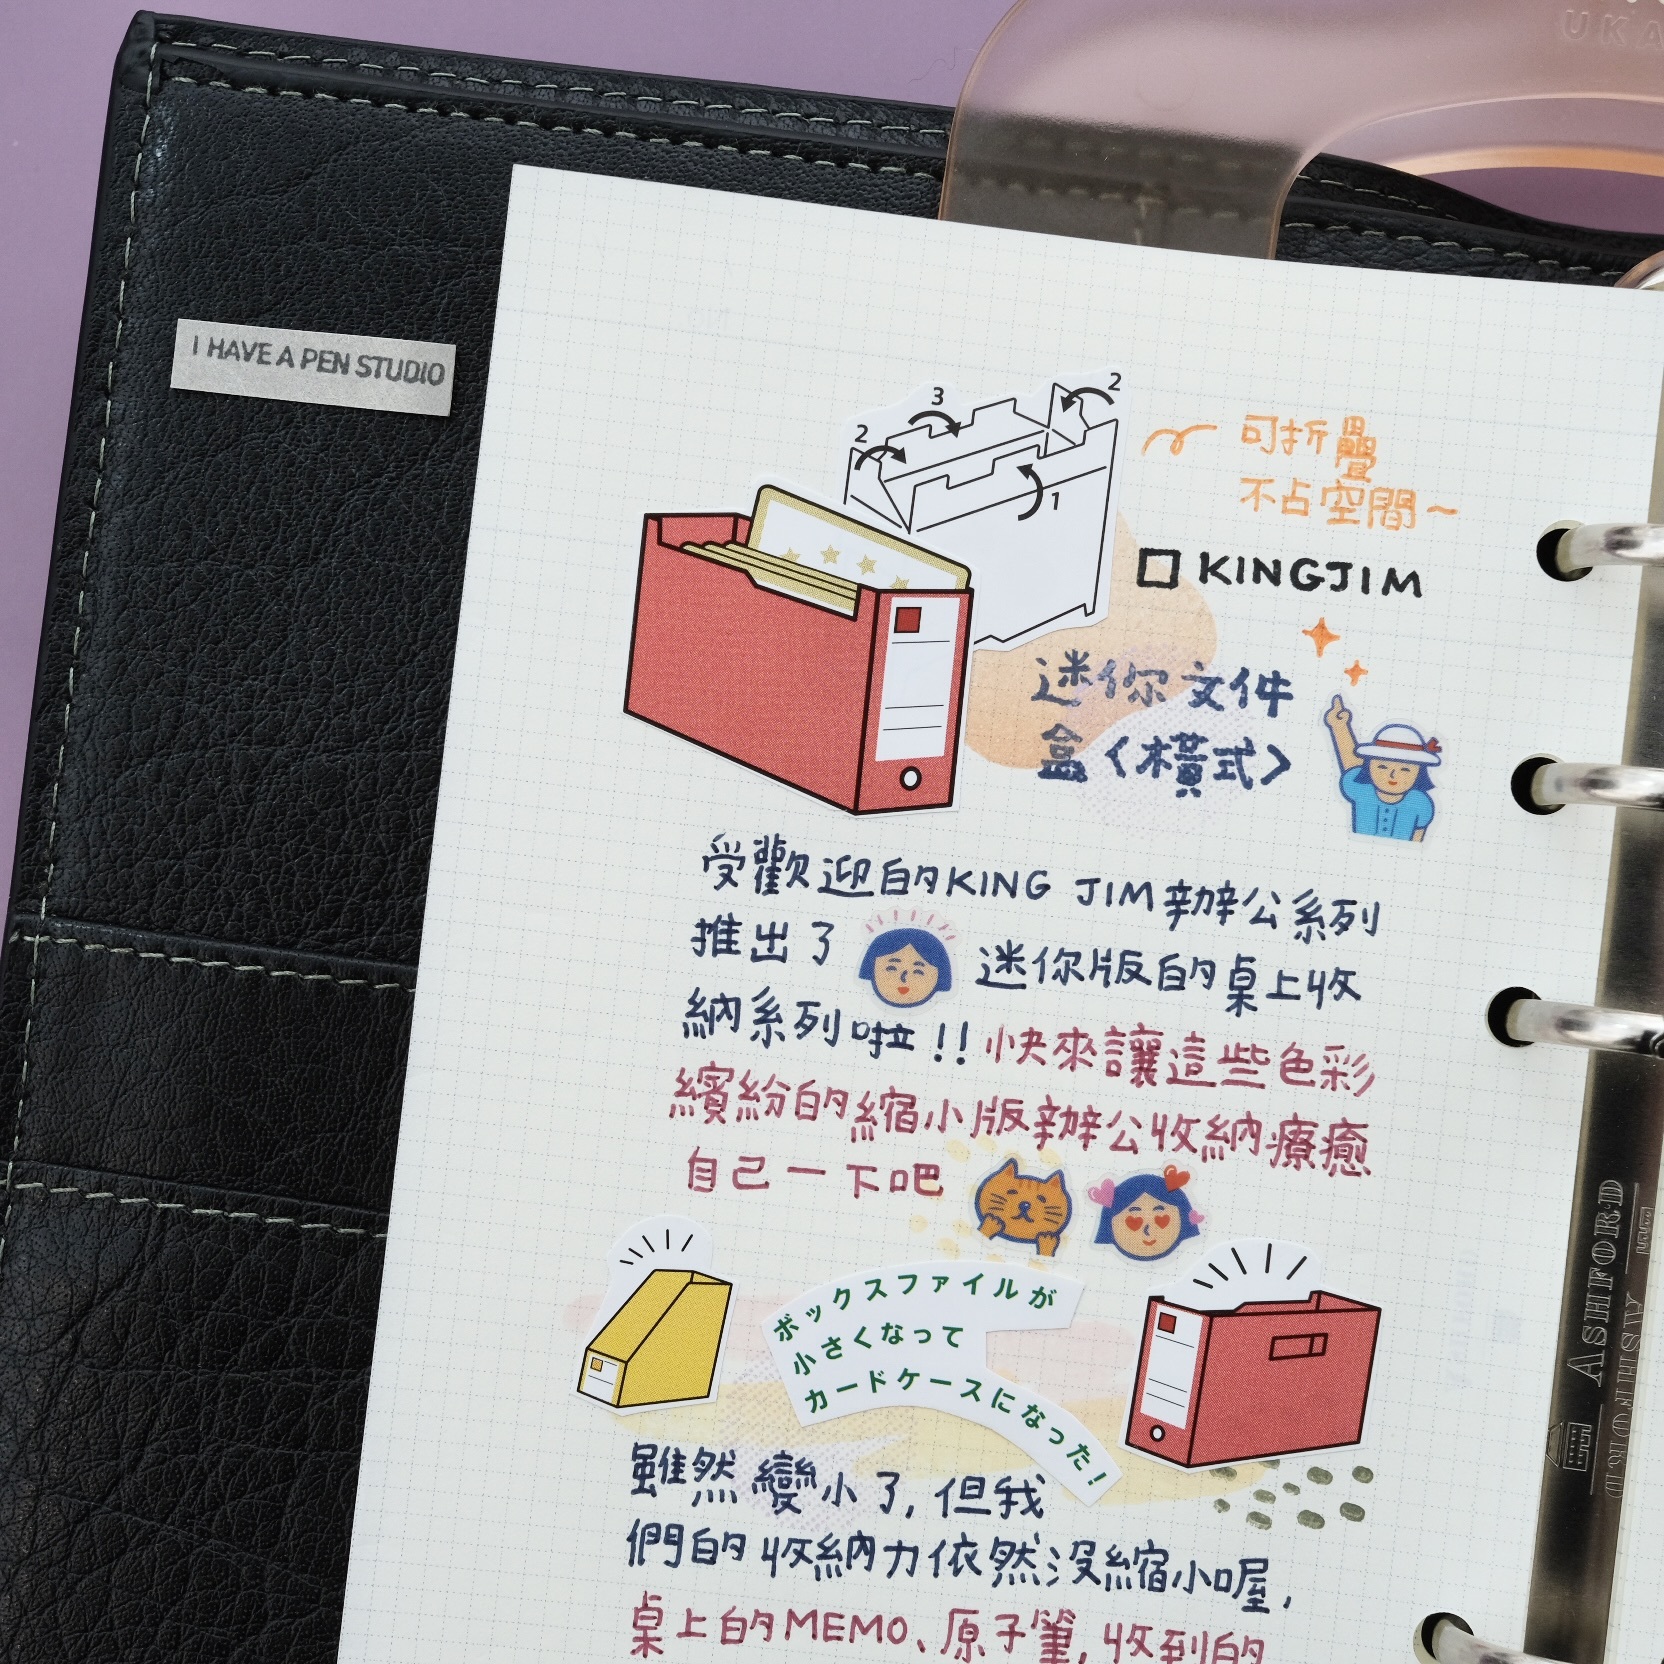 UKA
I HAVE A PEN STUDIO
2
3
2
1
可折疊
不占空間~
KINGJIM
迷你文件
盒〈橫式〉
受歡迎的KING JIM辦公系列
推出了 迷你版的桌上收
納系列啦!!快來讓這些色彩
繽紛的縮小版辦公收納療癒
自己一下吧
ボックスファイルが
小さくなって
カードケースになった!
雖然變小了,但我
們的收納力依然沒縮小喔,
桌上的MEMO、原子筆,收到的
ASHFORD
ASHFORD